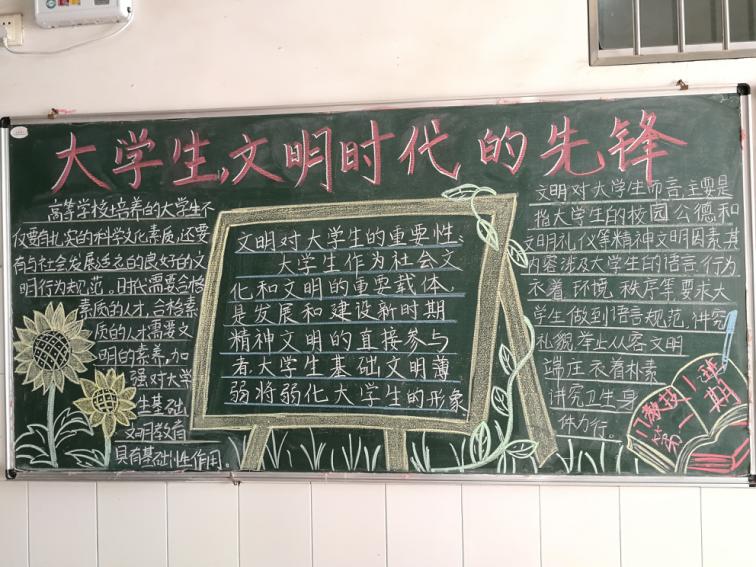 大学生,文明时代的先锋
高等学校培养的大学生不
仅要有扎实的科学文化素质,还要
有与社会发展适应的良好的文
明行为规范,时代需要合格
素质的人才,合格素
质的人才需要文
明的素养,加
强对大学
生基础
文明教育
具有基础性作用。
文明对大学生的重要性:
大学生作为社会文
化和文明的重要载体,
是发展和建设新时期
精神文明的直接参与
者大学生基础文明薄
弱将弱化大学生的形象
文明对大学生而言,主要是
指大学生的校园公德和
文明礼仪等精神文明因素,其
内容涉及大学生的语言,行为
衣着,环境,秩序等,要求大
学生做到语言规范,讲究
礼貌,举止从容文明
端庄,衣着朴素
讲究卫生,身
体力行。
17教技1班
第一期